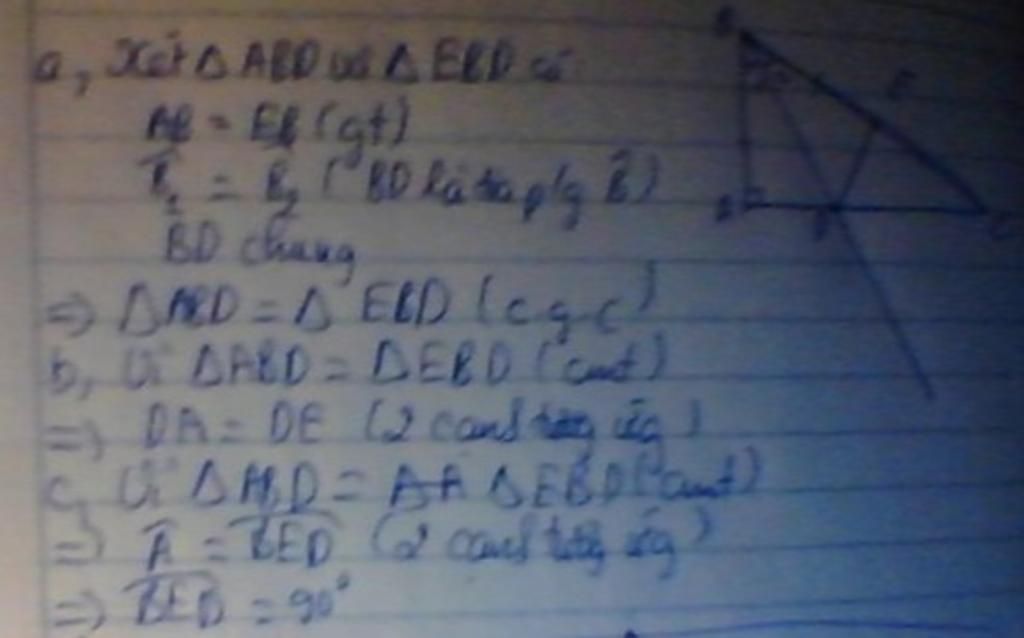 a, Xét Δ ABD và Δ EBD có
AB = EB (gt)
B̂₁ = B̂₂ ( BD là tia p/g B̂ )
BD chung
=> Δ ABD = Δ EBD ( c g c )
b, Vì Δ ABD = Δ EBD ( cmt )
=> DA = DE ( 2 cạnh tg ứg )
c, Vì Δ ABD = Δ EBD ( cmt )
=> Â = BED ( 2 tg ứg )
=> BED = 90°
B
E
A
D
C